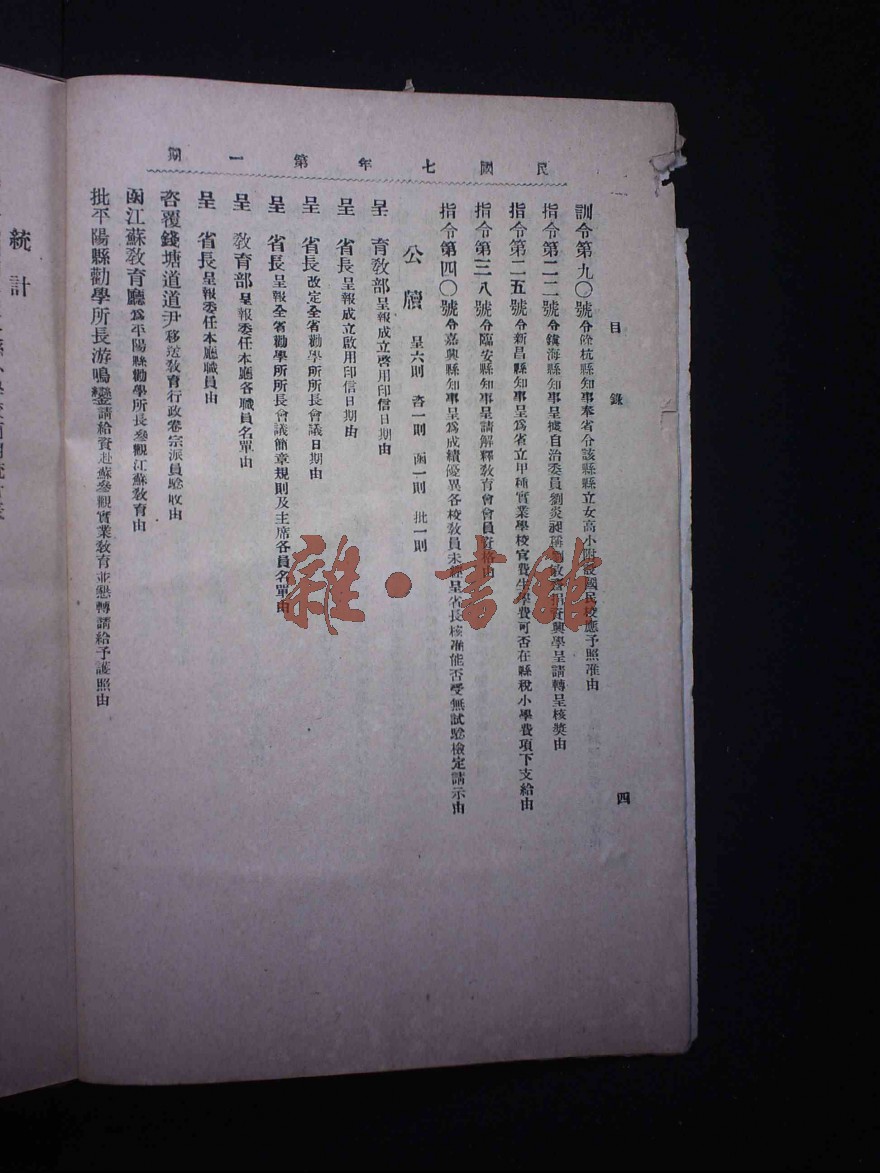 民國七年第一期
目錄
四
訓令第九〇號 令餘杭縣知事奉省令該縣縣立女高小附設國民校應予照准由
指令第二二號 令鎮海縣知事呈據自治委員劉炎昶捐資興學呈請轉呈核獎由
指令第二五號 令新昌縣知事呈爲省立甲種實業學校官費生學費可否在縣稅小學費項下支給由
指令第三八號 令臨安縣知事呈請解釋敎育會會員資格由
指令第四〇號 令嘉興縣知事呈爲成績優異各校敎員未經呈省長核准能否受無試驗檢定請示由
公牘 呈六則 咨一則 函一則 批一則
呈 育敎部呈報成立啓用印信日期由
呈 省長呈報成立啟用印信日期由
呈 省長改定全省勸學所所長會議日期由
呈 省長呈報全省勸學所所長會議簡章規則及主席各員名單由
呈 敎育部呈報委任本廳各職員名單由
呈 省長呈報委任本廳職員由
咨覆錢塘道道尹移送敎育行政卷宗派員驗收由
函江蘇敎育廳爲平陽縣勸學所長參觀江蘇敎育由
批平陽縣勸學所長游鳴鑾請給資赴蘇參觀實業敎育並懇轉請給予護照由
統計
雜·書館